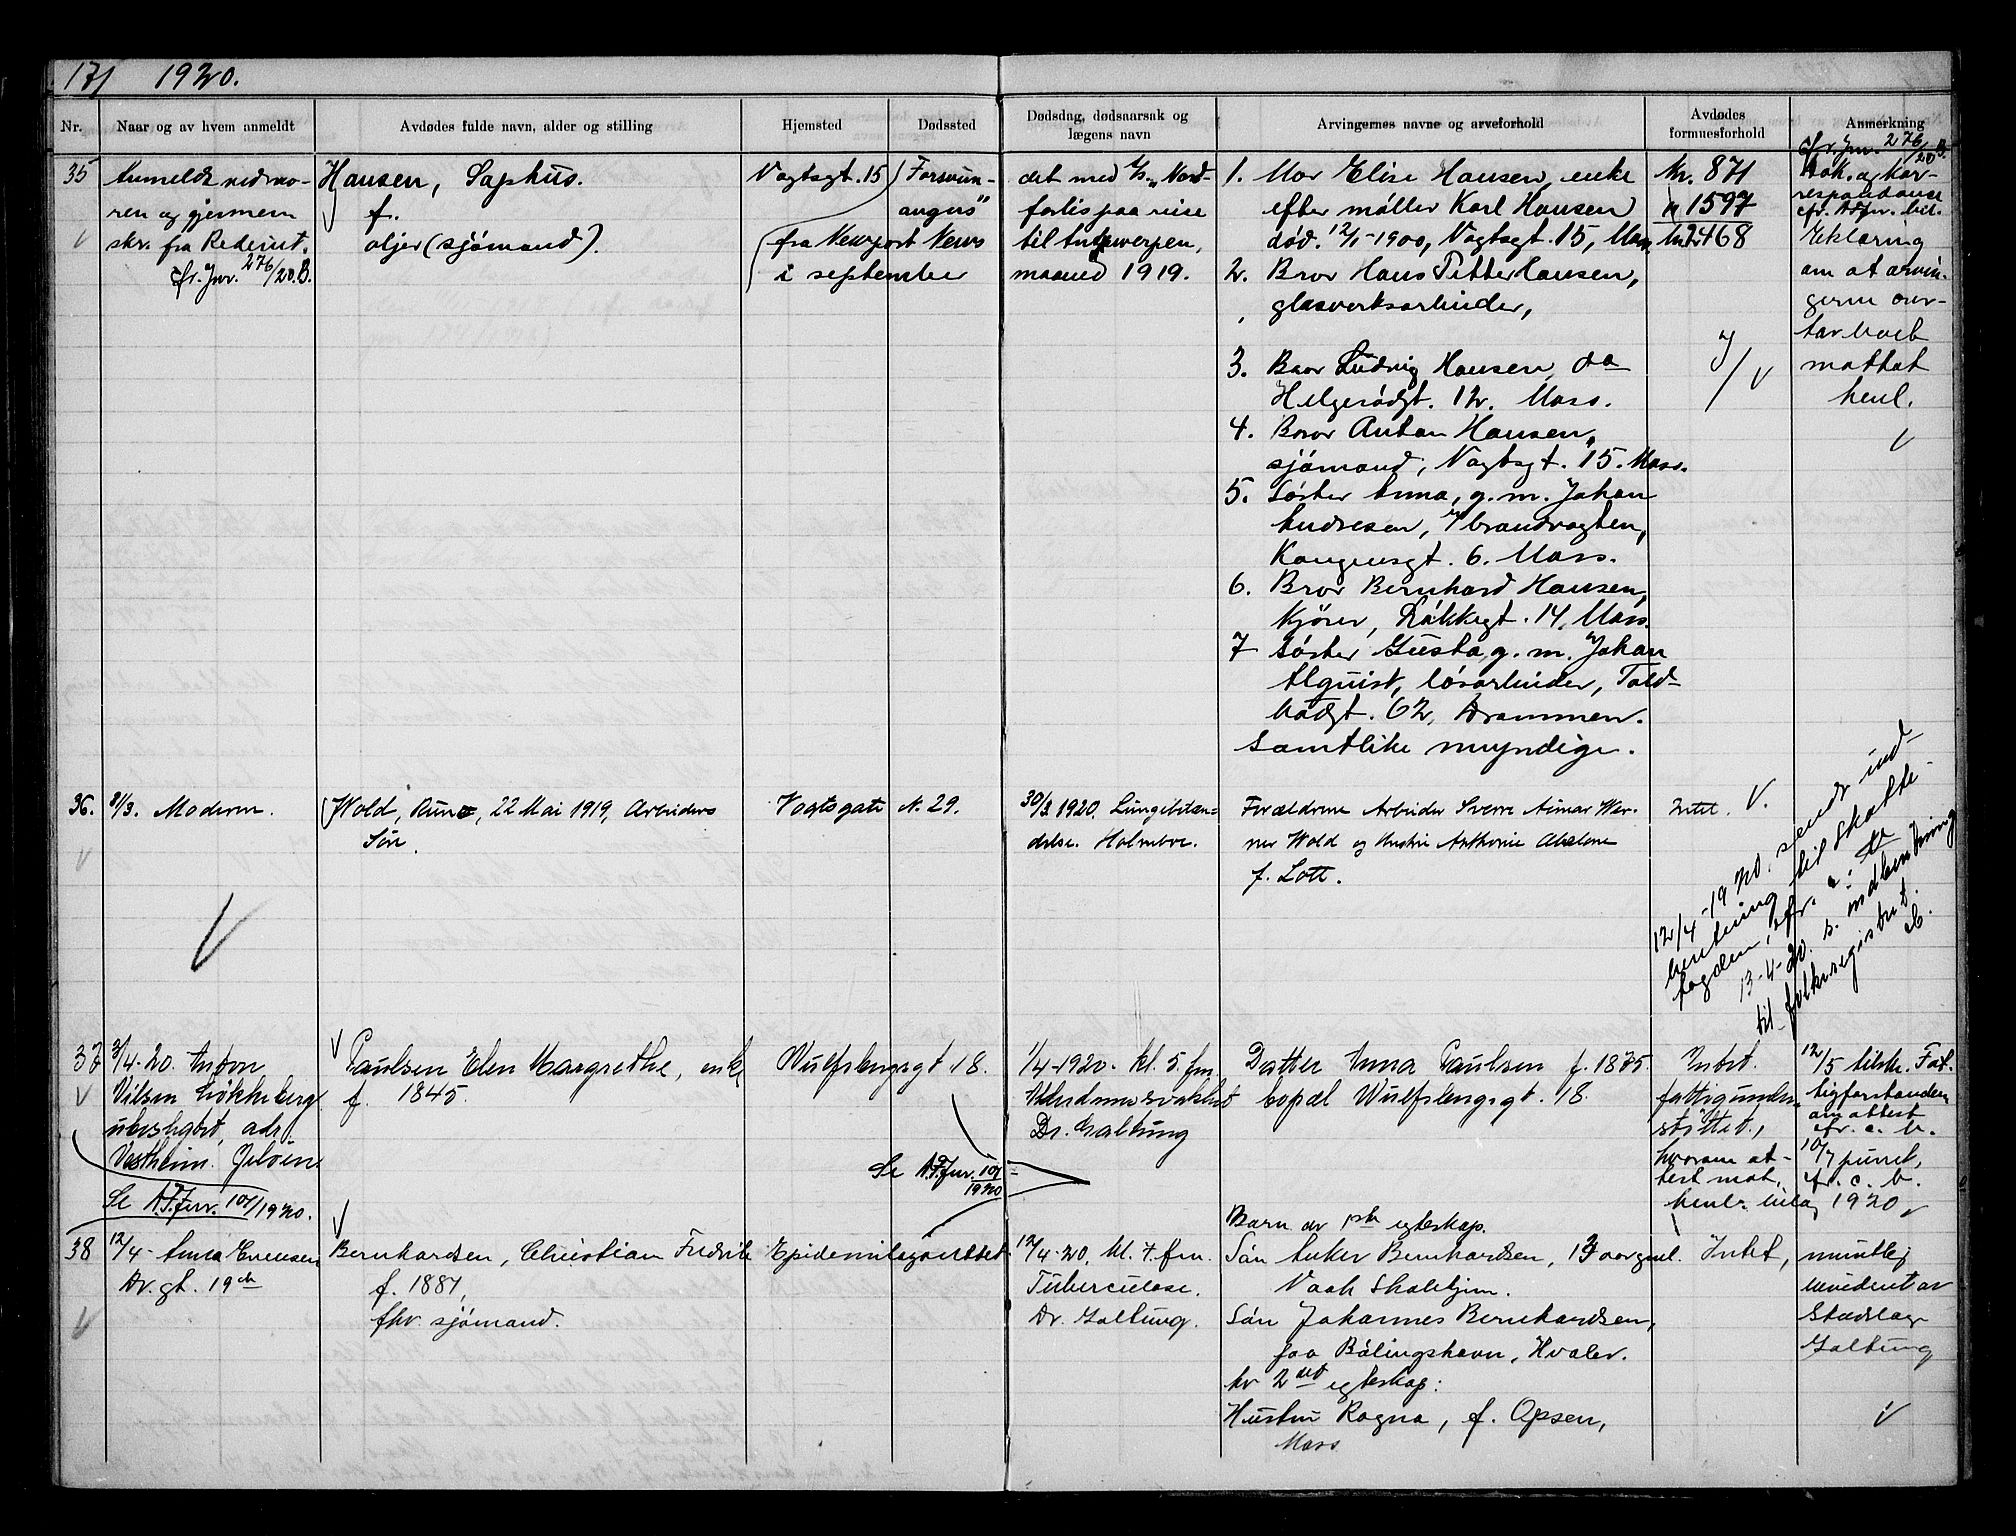 171 1920.
Nr. Naar og av hvem anmeldt Avdødes fulde navn, alder og stilling Hjemsted Dødssted Dødsdag, dødsaarsak og lægens navn Arvingernes navne og arveforhold Avdødes formuesforhold Anmerkning
35
ren og gjennem
skr. fra Rederint.
cfr. Jnr. 276/20.B.
Hansen, Sophus.
f.
oljer (sjømand).
Vogtsgt. 15 Forsvun-
angers"
fra Newport News
i september
det med S/S. "Nord-
forlis paa reise
til Antwerpen,
maaned 1919.
1. Mor Elise Hansen, enke
efter møller Karl Hansen
død. 12/1-1900, Vogtsgt. 15, Moss.
2. Bror Hans Petter Hansen,
glasverksarbeider,
3. Bror Ludvig Hansen, do
Helgerødgt. 12. Moss.
4. Bror Anton Hansen,
sjømand, Vogtsgt. 15. Moss.
5. Søster Anna, g. m. Johan
Andresen, brandvagten,
Kongensgt. 6. Moss.
6. Bror Bernhard Hansen,
kjører, Løkkegt. 14, Moss.
7 Søster Gusta, g. m. Johan
Alquist, løsarbeider, Told-
bodgt. 62, Drammen.
Samtlike myndige.
Kr. 871
" 1597
Kr. 2468
cfr. Jnr. 276/20 B.
Dok. og kor-
respondance
Erklæring
om at arvin-
gerne over-
tar boet
mottat
henl.
36. 31/3. Moderen.
Wold, Rune, 22 Mai 1919, Arbeiders
Søn.
Vogtsgate N. 29.
30/3 1920. Lungebetæn-
delse. Holmboe.
Forældrene Arbeider Sverre Aimar Wer-
ner Wold og Hustru Anthonie Abelone
f. Lott.
Intet.
12/4-1920. sendt ind-
beretning til skatte-
fogden, cfr. c: b
13-4-20. s. indberetning
til folkeregistret.
cb.
37 3/4-20. Anton
Nilsen Løkkeberg
ubeslegtet, adr.
Vestheim. Jeløen.
Se A.F.Jnr. 101/1920.
Paulsen Elen Margrethe, enke
f. 1845.
Wulfsbergsgt 18.
Se A.F.Jnr. 101/1920
1/4-1920. kl. 5. fm.
Alderdomssvakhet
Dr. Galtung
Datter Anna Paulsen f. 1875.
bopæl Wulfsbergsgt. 18.
Intet.
fattigunder-
støttet,
hvorom at-
test mot.
henl. bilag 1920
12/5 tilskr. Fat-
tigforstanderen
om attest
cfr. c. b.
10/7 purret,
cfr. c. b.
38 12/4- Anna Evensen
Dr. gt. 19 ch
Bernhardsen, Christian Fredrik
f. 1881,
fhv. sjømand.
Epidemilasarettet
12/4-20, kl. 7. fm.
Tuberculose.
Dr. Galtung.
Barn av 1ste egteskap.
Søn Anker Bernhardsen, 13 aar gml.
Vaak Skolehjem.
Søn Johannes Bernhardsen,
paa Bølingshavn, Hvaler.
Av 2det egteskap:
Hustru Ragna, f. Opsen,
Moss
Intet,
muntlig
konfidert av
Stadslæge
Galtung